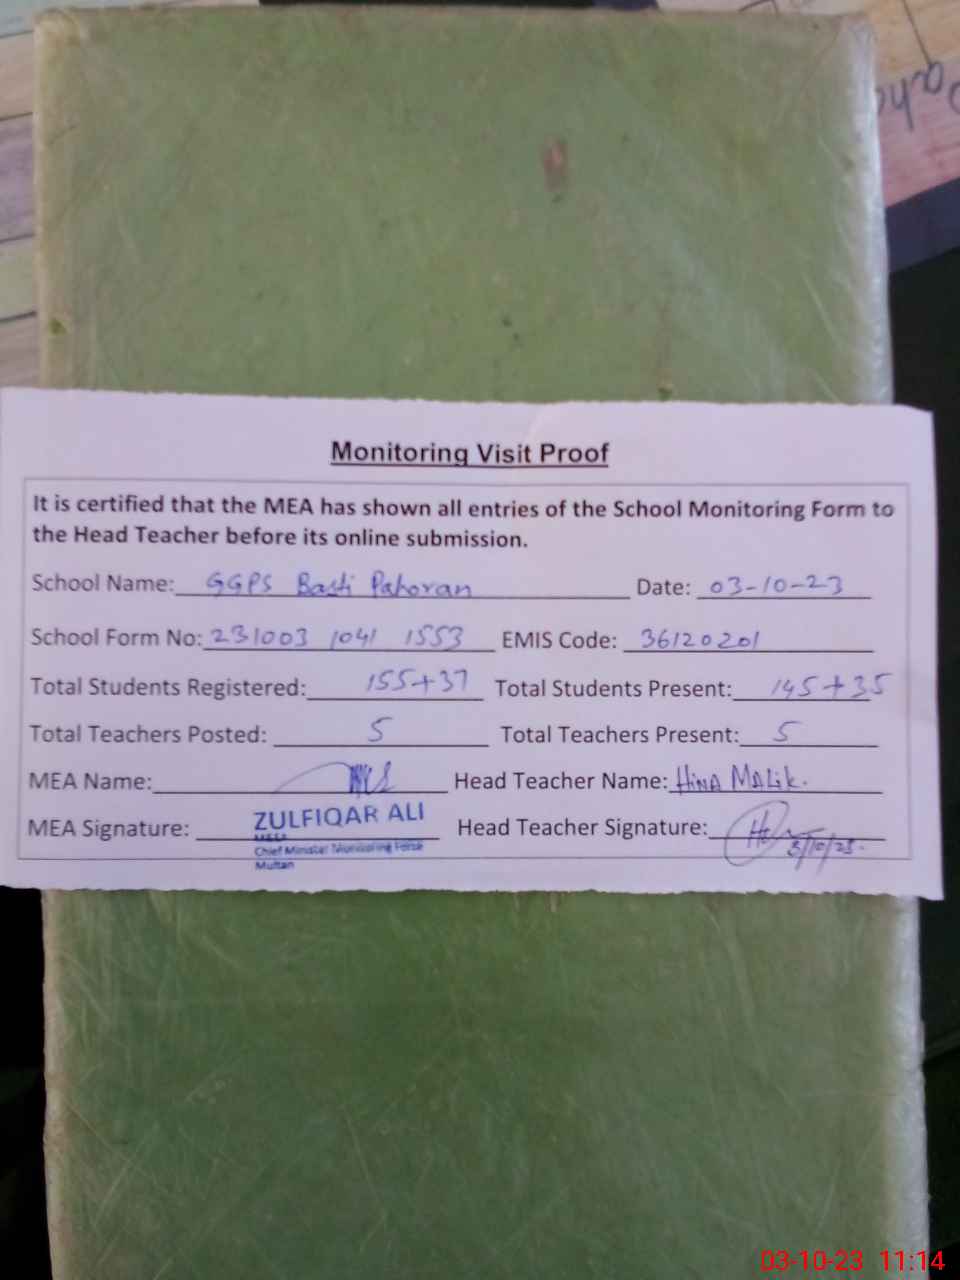 Monitoring Visit Proof
It is certified that the MEA has shown all entries of the School Monitoring Form to
the Head Teacher before its online submission.
School Name: GGPS Basti Pahoran Date: 03-10-23
School Form No: 231003 1041 1553 EMIS Code: 36120201
Total Students Registered: 155+37 Total Students Present: 145+35
Total Teachers Posted: 5 Total Teachers Present: 5
MEA Name: Head Teacher Name: HINA MALIK.
MEA Signature: ZULFIQAR ALI Head Teacher Signature:
MEA
Chief Minister Monitoring Force
Multan
03-10-23 11:14